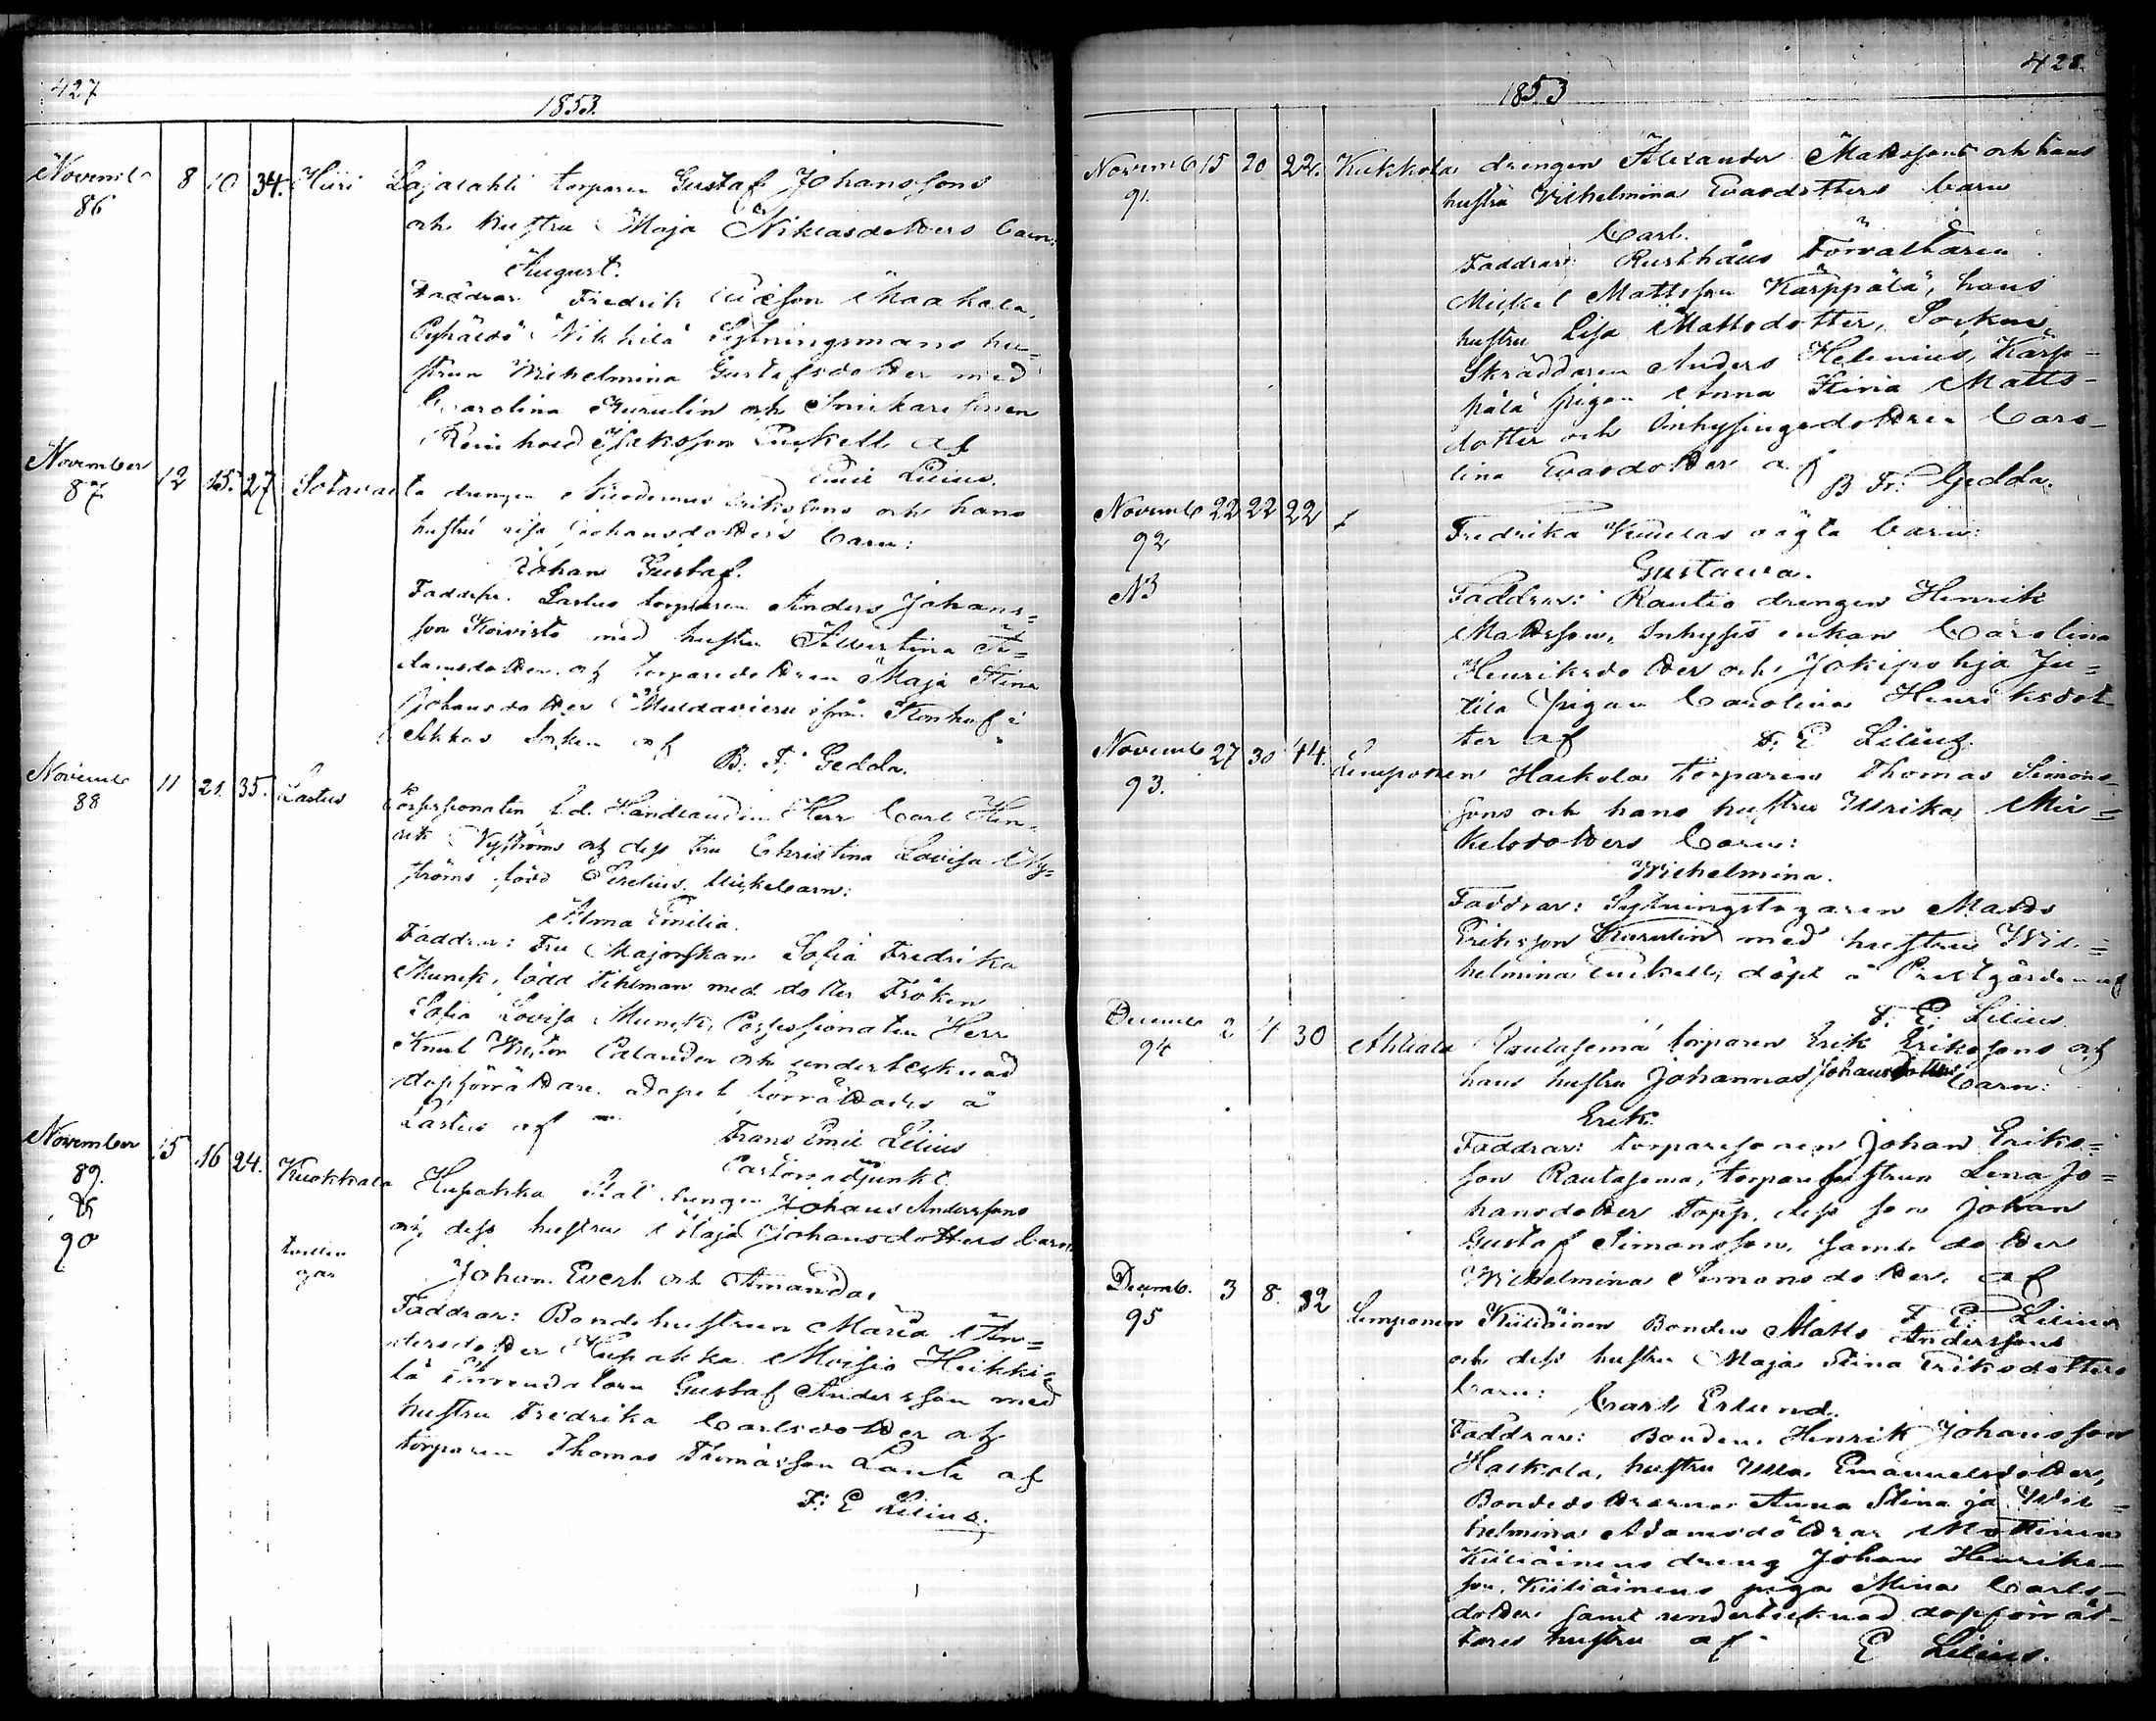 427
1853.
Novemb 86 8 10 34. Hiiri Lajalahti torparen Gustaf Johanssons
och hustru Maja Niklasdotters barn:
August.
Faddrar Fredrik
Nikkilä Sytningsmans hu=
strun Wilhelmina Gustafsdotter med
Carolina Kurulin och
Reinhold Isaksson af
Emil Lilius.
November 87 12 15. 27 Sotavalta drengen Nicodemus Erikssons och hans
hustru Johansdotters barn:
Johan Gustaf.
Faddrar. Lastus torparen Anders Johans=
son Koivisto med hustru Albertina A=
damsdotter, och torparedottren Maja Stina
Johansdotter ifrån i
Akkas Socken af
B. F. Gedda.
Novemb 88 11 21. 35. Lastus Possessionaten f.d. Handlanden Herr Carl Hen=
rik Nyströms och dess Fru Christina Lovisa Ny=
ströms född äktebarn:
Alma Emilia.
Faddrar: Fru Majorskan Sofia Fredrika
Munck, född Tihlman med dotter Fröken
Sofia Lovisa Munck, Possessionaten Herr
Knut Calander och undertecknad
dopförrättare. dopet förrättades å
Lastus af
Frans Emil Lilius
Pastorsadjunkt.
November 89. & 90 15 16 24. Kuokkala Hupakka drengen Johans Anderssons
och dess hustru Maja Johansdotters barn
tvillin
gar
Johan Evert och Amanda.
Faddrar: Bondehustrun Maria An=
dersdotter Hupakka Moisio Heikki=
lä Gustaf Andersson med
hustru Fredrika Carlsdotter och
torparen Thomas Thomasson af
F: E Lilius.
428.
1853
Novemb 91. 15 20 22. Kukkola drengen Alexander Mattssons och hans
hustru Vilhelmina Evasdotters barn
Carl.
Faddrar: Rusthålls Förvaltaren
Mickel Mattsson Kärppälä, hans
hustru Lisa Mattsdotter, Socken
Skräddaren Anders Helenius, Kärp-
pälä pigan Anna Stina Matts-
dotter och Inhysingedottren Caro-
lina Evasdotter af
B Fr: Gedda.
Novemb 92 22 22 22
NB
Fredrika oägta barn:
Gustava.
Faddrar: Rautio drengen Henrik
Mattsson, Inhyses enkan Carolina
Henriksdotter och Jokipohja Ju=
tila pigan Carolina Henriksdot
ter af F. E Lilius.
Novemb 93. 27 30 44. Lemponen Haskola torparen Thomas Simons
sons och hans hustru Ulrika Mic=
kelsdotters barn:
Wilhelmina.
Faddrar: Sytningstagaren Matts
Eriksson Kurulin med hustru Wil=
helmina döpt å Prestgården af
F. E. Lilius.
Decemb 94 2 4 30 Ahtiala Rautasemä torparen Erik Erikssons och
hans hustru Johannas Johansdotters barn:
Erik.
Faddrar: torparesonen Johan Eriks=
son Rautasema, torparehustrun Lena Jo=
hansdotter Topp, dess son Johan
Gustaf Simonsson, samt dotter
Wilhelmina Simonsdotter. af
F. E. Lilius
Decemb. 95 3 8. 32 Lemponen Kiiliäinen Bonden Matts Anderssons
och dess hustru Maja Stina Eriksdotters
barn: Carl Erlund.
Faddrar: Bonden Henrik Johansson
Haskola, hustru Ulla Emanuelsdotter,
Bondedöttrarna Anna Stina ja Wil=
helmina Adamsdöttrar Mattinen
Kiiliäinens dreng Johan Henriks-
son, Kiiliäinens piga Mina Carls-
dotter samt undertecknad dopförrät-
tares hustru af E Lilius.